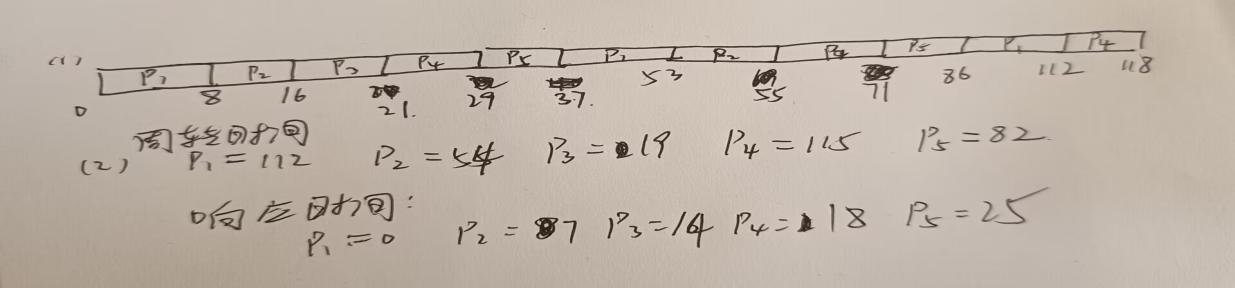 (1) P₁ P₂ P₃ P₄ P₅ P₁ P₂ P₄ P₅ P₁ P₄
0 8 16 21. 29 37. 53 55 71 86 112 118
(2) 周转时间
P₁ = 112 P₂ = 54 P₃ = 19 P₄ = 115 P₅ = 82
响应时间:
P₁ = 0 P₂ = 7 P₃ = 14 P₄ = 18 P₅ = 25